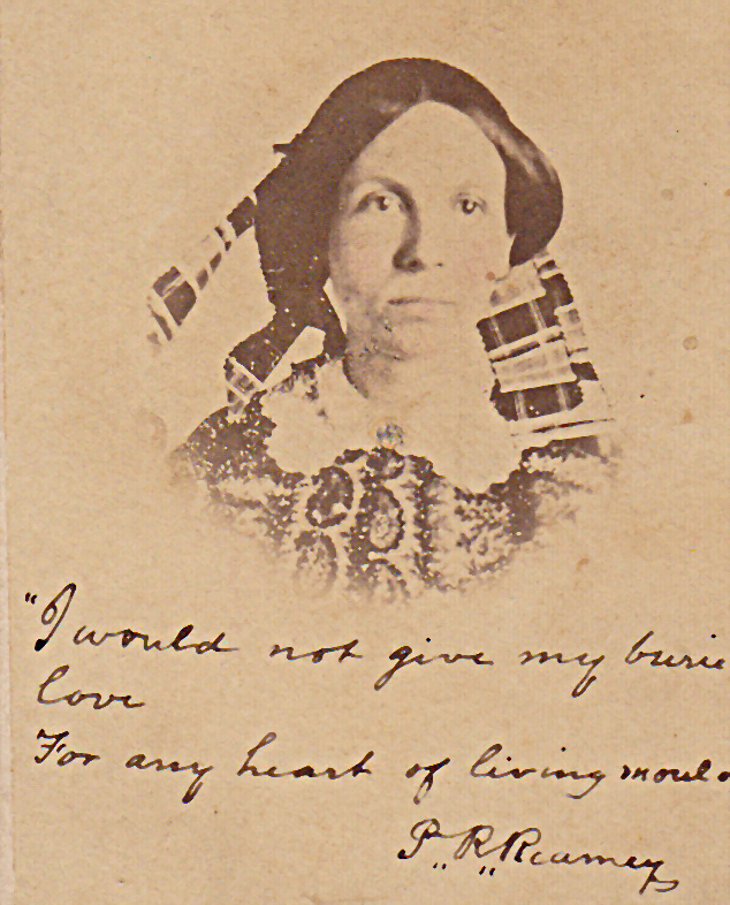 "I would not give my burie
love
For any heart of living mould
P. R. Reamey